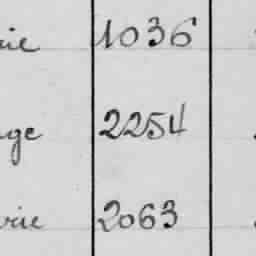 rie 1036
ge 2254
rie 2063